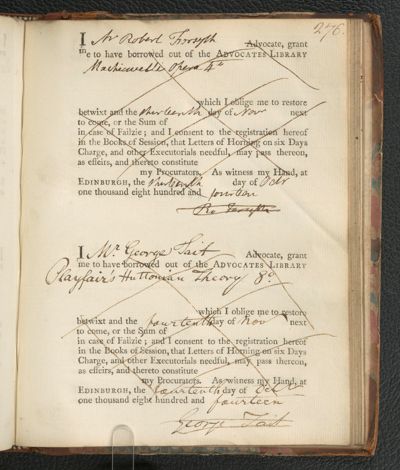 276.
I Mr Robert Forsyth Advocate, grant
me to have borrowed out of the ADVOCATES LIBRARY
Machiavelli Opera 4o
which I oblige me to restore
betwixt and the thirteenth day of Nov next
to come, or the Sum of
in case of Failzie; and I consent to the registration hereof
in the Books of Session, that Letters of Horning on six Days
Charge, and other Executorials needful, may pass thereon,
as effeirs, and thereto constitute
my Procurators. As witness my Hand, at
EDINBURGH, the thirteenth day of Octr
one thousand eight hundred and fourteen
Ro Forsyth
I Mr George Tait Advocate, grant
me to have borrowed out of the ADVOCATES LIBRARY
Playfair's Huttonian Theory 8o
which I oblige me to restore
betwixt and the fourteenth day of Nov next
to come, or the Sum of
in case of Failzie; and I consent to the registration hereof
in the Books of Session, that Letters of Horning on six Days
Charge, and other Executorials needful, may pass thereon,
as effeirs, and thereto constitute
my Procurators. As witness my Hand, at
EDINBURGH, the fourteenth day of Octr
one thousand eight hundred and fourteen
George Tait